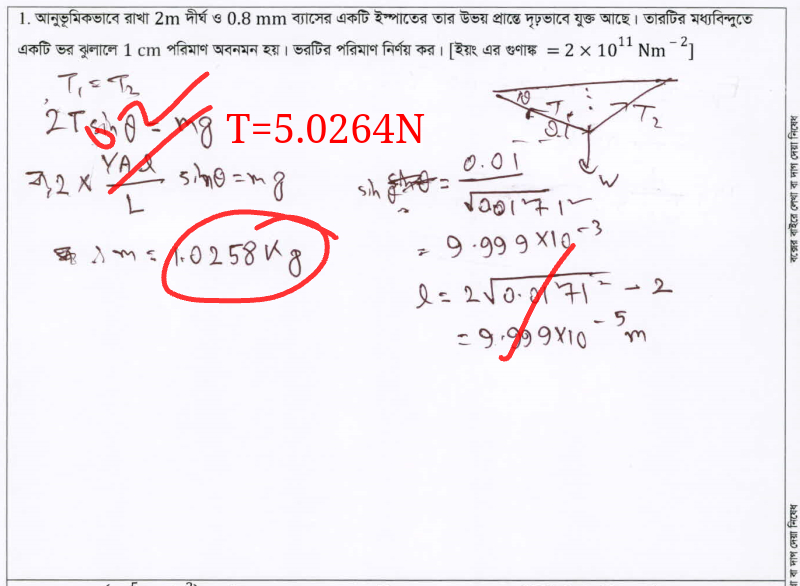 1. আনুভূমিকভাবে রাখা 2m দীর্ঘ ও 0.8 mm ব্যাসের একটি ইস্পাতের তার উভয় প্রান্তে দৃঢ়ভাবে যুক্ত আছে। তারটির মধ্যবিন্দুতে
একটি ভর ঝুলালে 1 cm পরিমাণ অবনমন হয়। ভরটির পরিমাণ নির্ণয় কর। [ইয়ং এর গুণাঙ্ক = 2 × 10^11 Nm^-2]
T₁ = T₂
2T sinθ = mg
T=5.0264N
বা, 2 × YAl/L sinθ = mg
m = 1.0258 Kg
θ T₁ T₂
W
sinθ = 0.01/√(0.01²+1²)
= 9.999×10^-3
l = 2√(0.01²+1²) - 2
= 9.999×10^-5 m
বক্সের বাইরে লেখা বা দাগ দেয়া নিষেধ
বা দাগ দেয়া নিষেধ